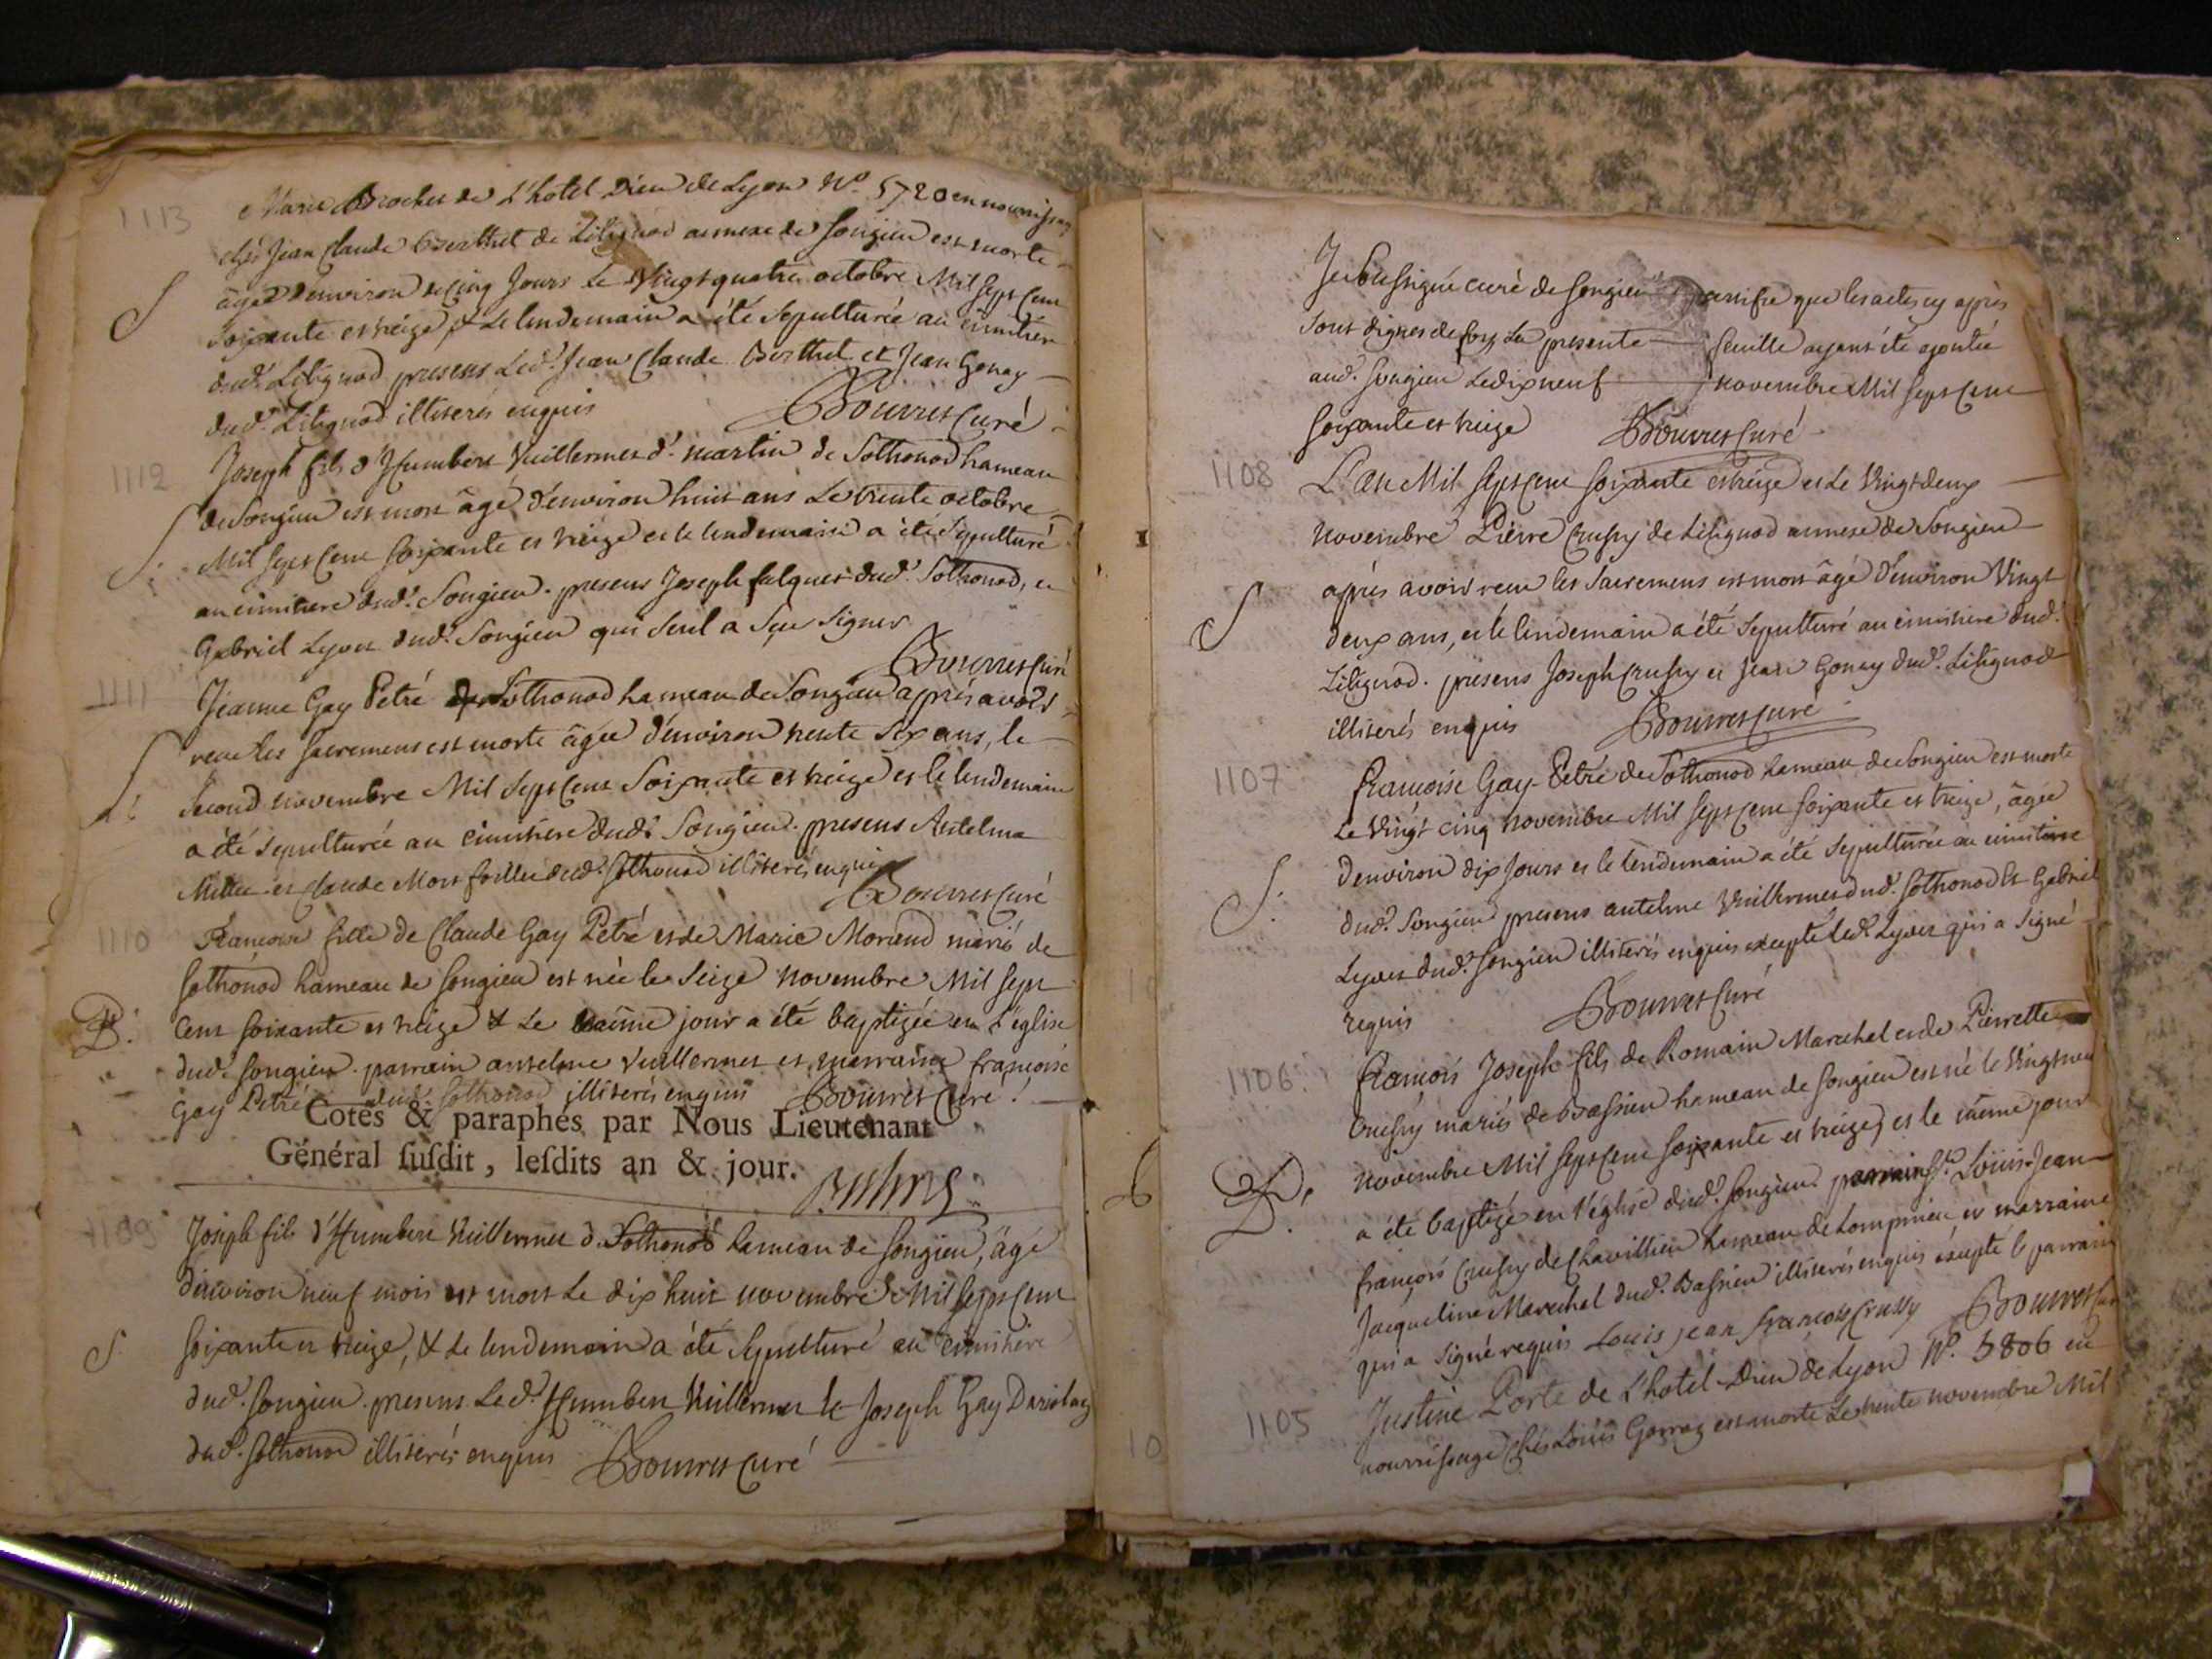 1113
Marie Brochet de L'hotel Dieu de Lyon N.º 5720 en nourissage
chés Jean Claude Berthet de Litignod annexe de Songieu est morte
S
âgée d'environ cinq Jours Le Vingt quatre octobre Mil sept Cent
soixante et treize, & Le lendemain a été sepulturée au cimitiere
dud. Litignod presens Led. Jean Claude Berthet et Jean Gonay
dud. Litignod illiterés enquis Bouvret Curé
1112
Joseph fils d'Humbert Vuillermet d. martin de Sothonod hameau
S
de Songieu est mort âgé d'environ huit ans Le trente octobre
Mil sept Cent soixante et treize et le lendemain a été sepulturé
au cimitiere dud. Songieu. presens Joseph falquet dud. Sothonod, et
Gabriel Lyvet dud. Songieu qui seul a sçu signer
Bouvret Curé
1111
Jeanne Gay Petré de Sothonod hameau de Songieu après avoir
S
receu les sacremens est morte âgée d'environ trente six ans, le
second novembre Mil sept Cent soixante et treize et le lendemain
a été sepulturée au cimitiere dud. Songieu. presens Antelme
et Claude dud. Sothonod illiterés enquis
Bouvret Curé
1110
Francoise fille de Claude Gay Petré et de Marie Morand mariés de
Sothonod hameau de Songieu est née le seize novembre Mil sept
B.
Cent soixante et treize & Le même jour a été baptizée en L'église
dud. Songieu. parrain antelme Vuillermet et marraine francoise
Gay Petré dud. Sothonod illiterés enquis Bouvret Curé.
Cotés & paraphés par Nous Lieutenant
Général ſuſdit, leſdits an & jour.
1109
Joseph fils d'Humbert Vuillermet d. Sothonod hameau de Songieu, âgé
d'environ neuf mois est mort Le dix huit novembre Mil sept Cent
S
soixante et treize, & Le lendemain a été sepulturé au cimitiere
dud. Songieu. presens Led. Humbert Vuillermet & Joseph Gay
dud. Sothonod illiterés enquis Bouvret Curé
Je soussigné curé de Songieu certifie que les actes cy après
sont dignes de foy La presente feuille ayant été ajoutée
aud. Songieu Le dix neuf novembre Mil sept Cent
soixante et treize Bouvret Curé
1108
L'an Mil sept Cent soixante et treize et Le Vingt deux
novembre Pierre Crussy de Litignod annexe de Songieu
S
après avoir receu les sacremens est mort âgé d'environ Vingt
deux ans, et le lendemain a été sepulturé au cimitiere dud.
Litignod. presens Joseph Crussy et Jean Gonay dud. Litignod
illiterés enquis Bouvret Curé
1107
francoise Gay-Petré de Sothonod hameau de Songieu est morte
Le Vingt cinq novembre Mil sept Cent soixante et treize, âgée
S.
d'environ dix Jours et le lendemain a été sepulturée au cimitiere
dud. Songieu presens antelme Vuillermet dud. Sothonod et Gabriel
Lyvet dud. Songieu illiterés enquis excepté led. Lyvet qui a signé
requis Bouvret Curé
1106
francois Joseph fils de Romain Marechal et de Pierrette
Crussy mariés de Bassieu hameau de Songieu est né le Vingt neuf
B.
novembre Mil sept Cent soixante et treize, et le même jour
a été baptizé en l'église dud. Songieu. parrain Sr. Louis-Jean
francois Crussy de Chavillieu hameau de Lompnieu et marraine
Jacqueline Marechal dud. Bassieu illiterés enquis excepté le parrain
qui a signé requis Louis jean francois Crussy Bouvret Curé
1105
Justine Porte de L'hotel-Dieu de Lyon N.º 5806 en
nourrissage chés Louis Garroz est morte Le trente novembre Mil